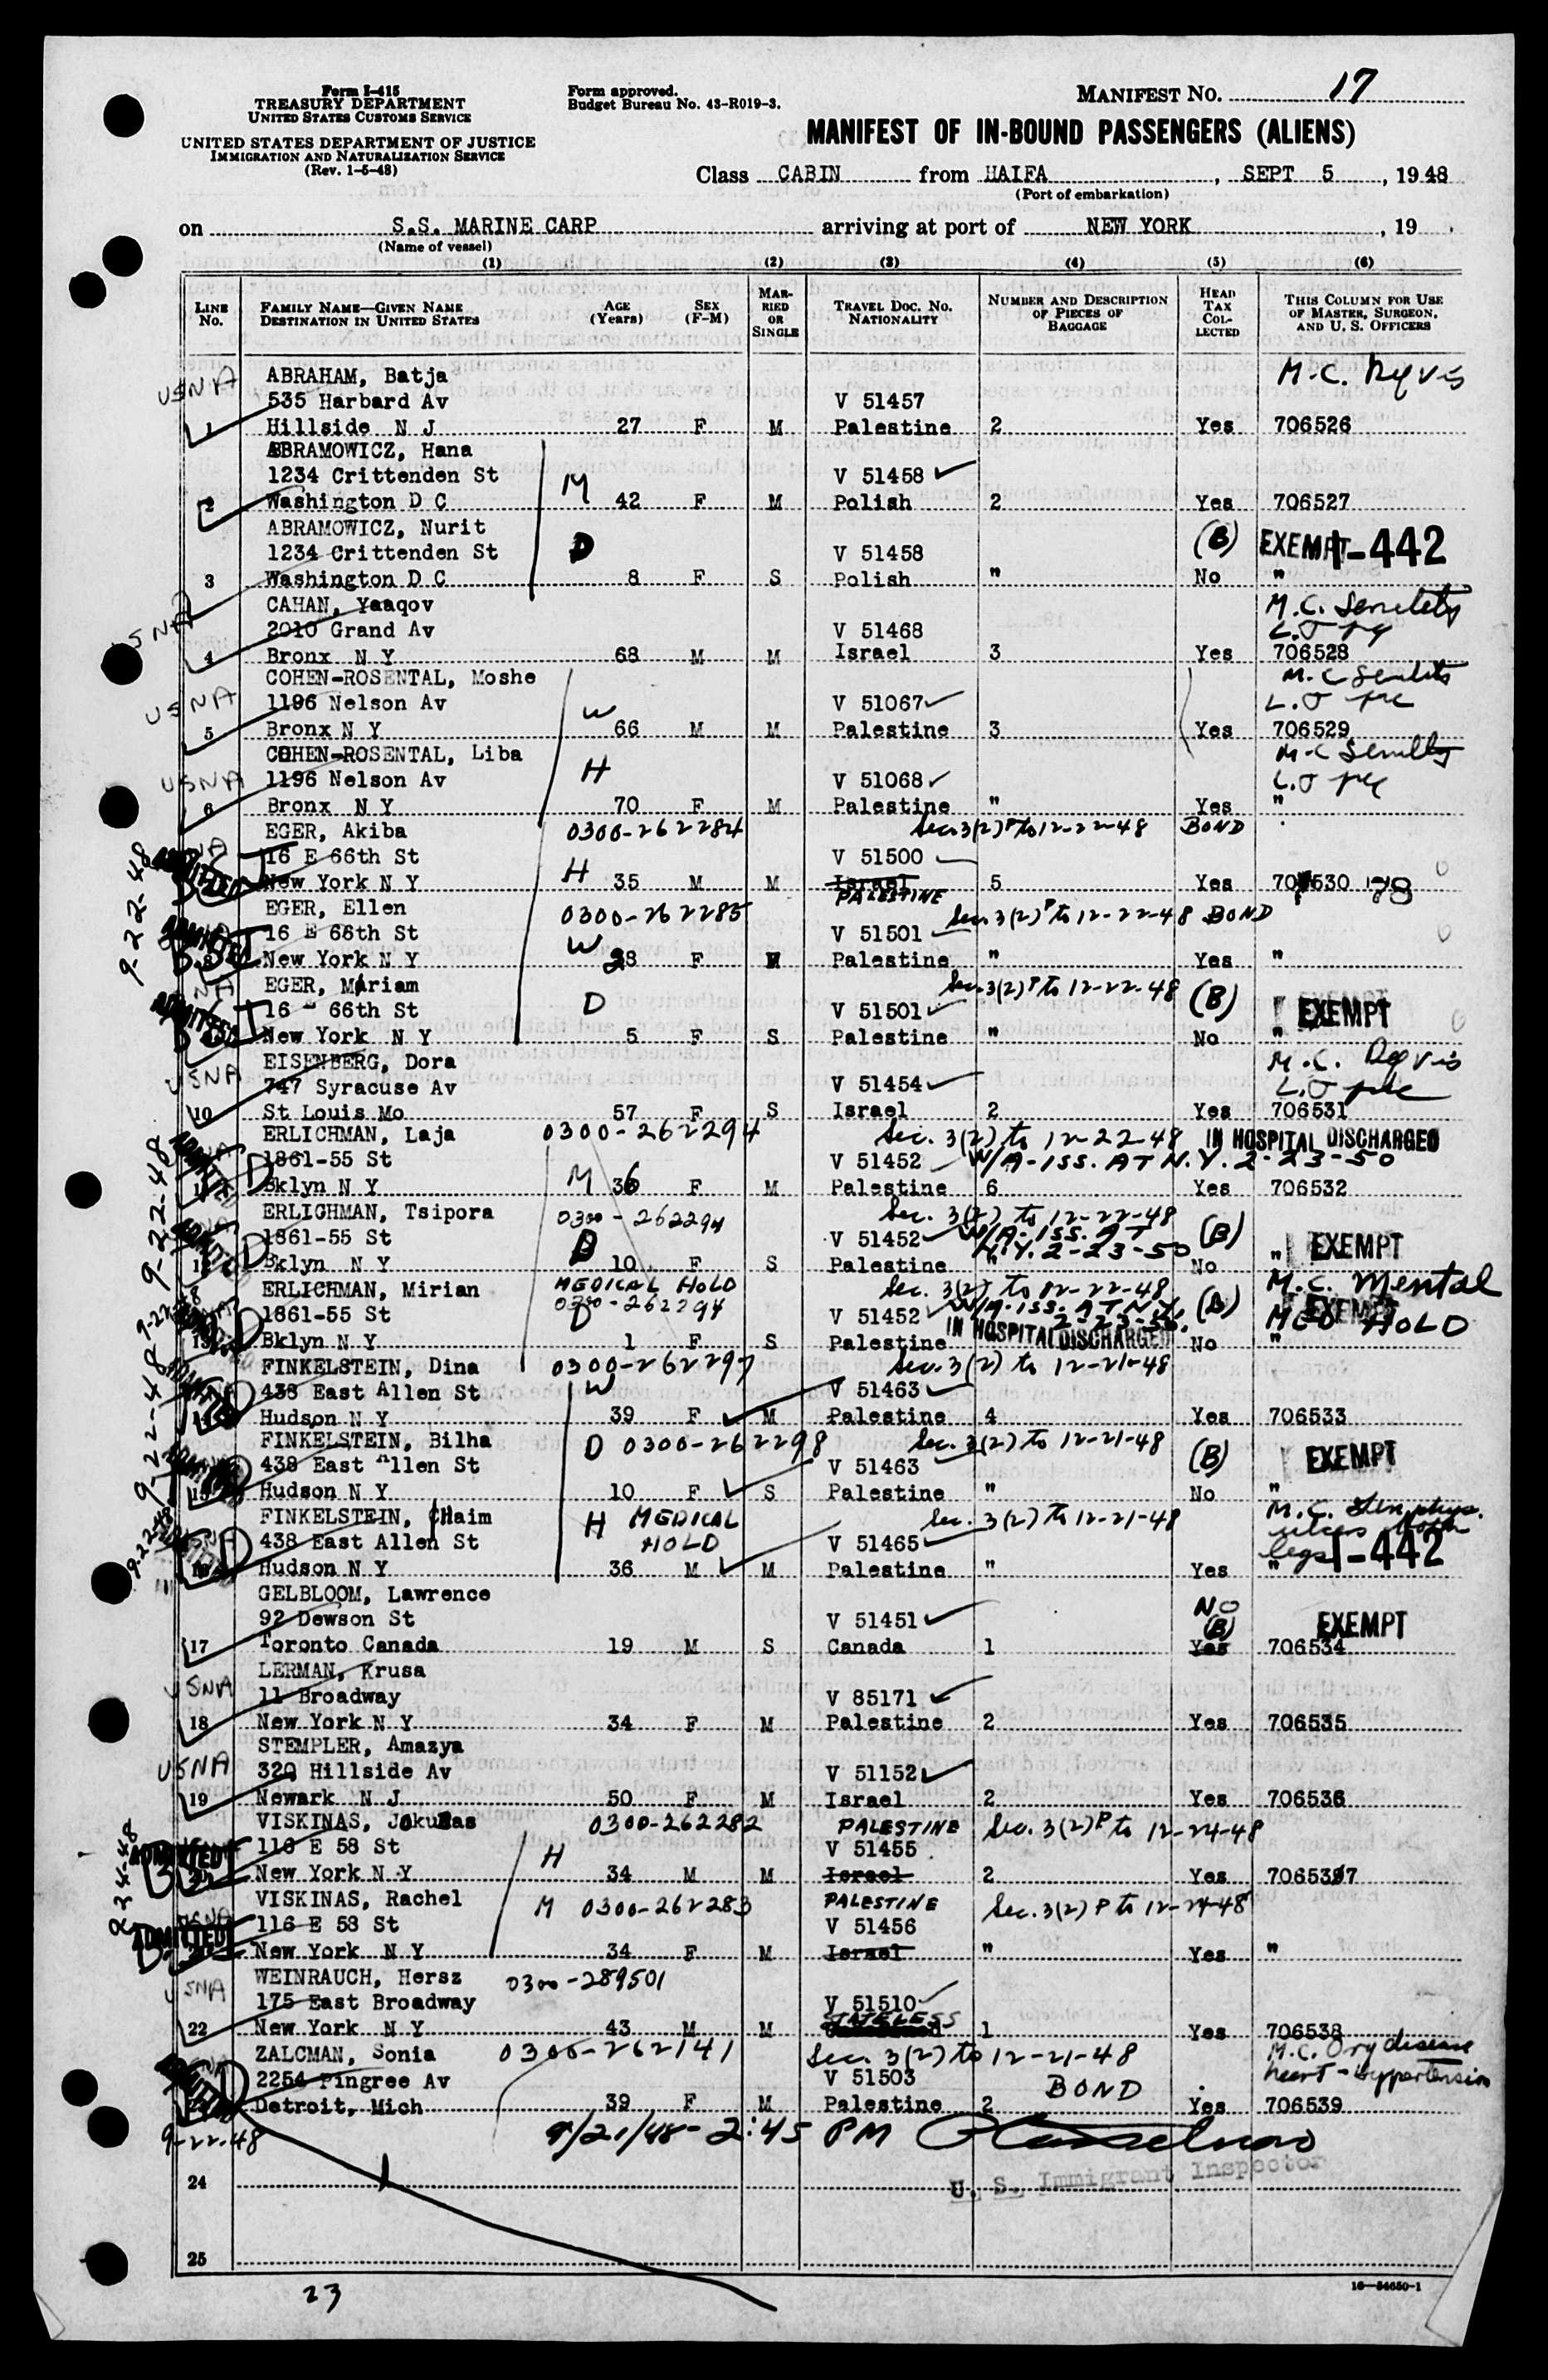 Form I-415
TREASURY DEPARTMENT
UNITED STATES CUSTOMS SERVICE
UNITED STATES DEPARTMENT OF JUSTICE
IMMIGRATION AND NATURALIZATION SERVICE
(Rev. 1-5-48)
Form approved.
Budget Bureau No. 43-R019-3.
MANIFEST NO. 17
MANIFEST OF IN-BOUND PASSENGERS (ALIENS)
Class CABIN from HAIFA, SEPT 5, 1948
(Port of embarkation)
on S.S. MARINE CARP arriving at port of NEW YORK, 19
(Name of vessel)
(1) (2) (3) (4) (5) (6)
LINE No. FAMILY NAME—GIVEN NAME DESTINATION IN UNITED STATES AGE (Years) SEX (F-M) MARRIED OR SINGLE TRAVEL DOC. NO. NATIONALITY NUMBER AND DESCRIPTION OF PIECES OF BAGGAGE HEAD TAX COLLECTED THIS COLUMN FOR USE OF MASTER, SURGEON, AND U. S. OFFICERS
USNA ABRAHAM, Batja M.C.
535 Harbard Av V 51457
1 Hillside N J 27 F M Palestine 2 Yes 706526
ABRAMOWICZ, Hana
1234 Crittenden St M V 51458
2 Washington D C 42 F M Polish 2 Yes 706527
ABRAMOWICZ, Nurit (B) EXEMPT I-442
1234 Crittenden St D V 51458
3 Washington D C 8 F S Polish " No "
CAHAN, Yaaqov M.C. Senility
USNA 2010 Grand Av V 51468
4 Bronx N Y 68 M M Israel 3 Yes 706528
COHEN-ROSENTAL, Moshe M.C. Senility
USNA 1196 Nelson Av W V 51067
5 Bronx N Y 66 M M Palestine 3 Yes 706529
COHEN-ROSENTAL, Liba M.C. Senility
USNA 1196 Nelson Av H V 51068
6 Bronx N Y 70 F M Palestine " Yes "
EGER, Akiba 0300-262284 Sec. 3(2)P to 12-22-48 BOND
16 E 66th St V 51500
New York N Y H 35 M M Israel PALESTINE 5 Yes 706530 78
EGER, Ellen 0300-262285 Sec. 3(2)P to 12-22-48 BOND
16 E 66th St W V 51501
New York N Y 28 F M Palestine " Yes "
EGER, Miriam Sec. 3(2)P to 12-22-48 (B) EXEMPT
16 " 66th St D V 51501
New York N Y 5 F S Palestine " No "
EISENBERG, Dora M.C.
USNA 747 Syracuse Av V 51454
10 St Louis Mo 57 F S Israel 2 Yes 706531
ERLICHMAN, Laja 0300-262294 Sec. 3(2) to 12-22-48 IN HOSPITAL DISCHARGED
1861-55 St V 51452 W/A-ISS. AT N.Y. 2-23-50
Bklyn N Y M 36 F M Palestine 6 Yes 706532
ERLIGHMAN, Tsipora 0300-262294 Sec. 3(2) to 12-22-48
1861-55 St D V 51452 W/A-ISS. AT N.Y. 2-23-50 (B) EXEMPT
12 Bklyn N Y 10 F S Palestine " No "
ERLICHMAN, Mirian MEDICAL HOLD 0300-262294 Sec. 3(2) to 12-22-48 M.C. Mental
1861-55 St D V 51452 W/A-ISS. AT N.Y. 2-23-50. (B) EXEMPT MED HOLD
13 Bklyn N Y 1 F S Palestine IN HOSPITAL DISCHARGED No "
FINKELSTEIN, Dina 0300-262297 Sec. 3(2) to 12-21-48
438 East Allen St W V 51463
Hudson N Y 39 F M Palestine 4 Yes 706533
FINKELSTEIN, Bilha D 0300-262298 Sec. 3(2) to 12-21-48
438 East Allen St V 51463 (B) EXEMPT
15 Hudson N Y 10 F S Palestine " No "
FINKELSTEIN, Chaim H MEDICAL HOLD Sec. 3(2) to 12-21-48 M.C.
438 East Allen St V 51465 ulcers both legs I-442
Hudson N Y 36 M M Palestine " Yes "
GELBLOOM, Lawrence NO
92 Dewson St V 51451 (B) EXEMPT
17 Toronto Canada 19 M S Canada 1 Yes 706534
LERMAN, Krusa
USNA 11 Broadway V 85171
18 New York N Y 34 F M Palestine 2 Yes 706535
STEMPLER, Amazya
USNA 320 Hillside Av V 51152
19 Newark N J 50 F M Israel 2 Yes 706536
VISKINAS, Jokubas 0300-262282 PALESTINE Sec. 3(2)P to 12-24-48
ADMITTED 116 E 58 St H V 51455
New York N Y 34 M M Israel 2 Yes 706537
VISKINAS, Rachel M 0300-262283 PALESTINE Sec. 3(2)P to 12-24-48
116 E 58 St V 51456
ADMITTED New York N Y 34 F M Israel " Yes "
WEINRAUCH, Hersz 0300-289501
USNA 175 East Broadway V 51510
22 New York N Y 43 M M STATELESS 1 Yes 706538
ZALCMAN, Sonia 0300-262141 Sec. 3(2) to 12-21-48 M.C. Org disease
2254 Pingree Av V 51503 BOND heart - Hypertension
Detroit, Mich 39 F M Palestine 2 Yes 706539
9-22-48 9/21/48 - 2:45 PM
24 U. S. Immigrant Inspector
25
23
16—54650-1